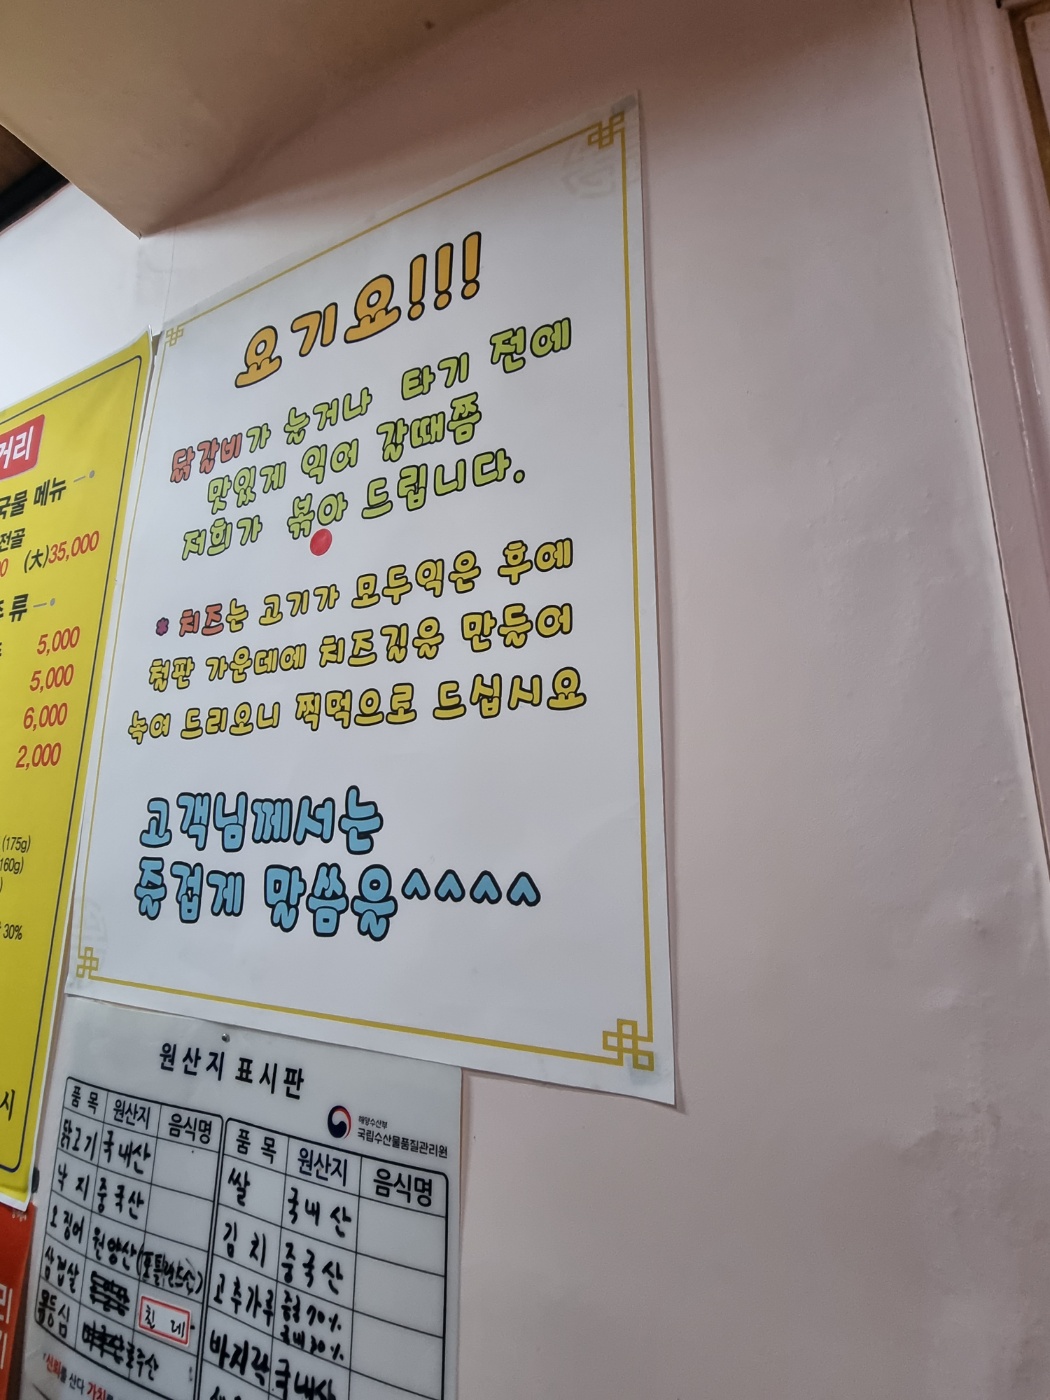 요기요!!!
닭갈비가 눋거나 타기 전에
맛있게 익어 갈때쯤
저희가 볶아 드립니다.
* 치즈는 고기가 모두익은 후에
철판 가운데에 치즈길을 만들어
녹여 드리오니 찍먹으로 드십시요
고객님께서는
즐겁게 말씀을^^^^
거리
국물 메뉴
전골
(大)35,000
류
5,000
5,000
6,000
2,000
(175g)
160g)
30%
시
원산지 표시판
해양수산부
국립수산물품질관리원
품 목 원산지 음식명
닭고기 국내산
낙 지 중국산
오징어 원양산 (포클랜드산)
삼겹살 칠 레
등심 호주산
품 목 원산지 음식명
쌀 국내산
김 치 중국산
고추가루 중국70%
국내30%
바지락 국내산
신뢰를 산다 가치를